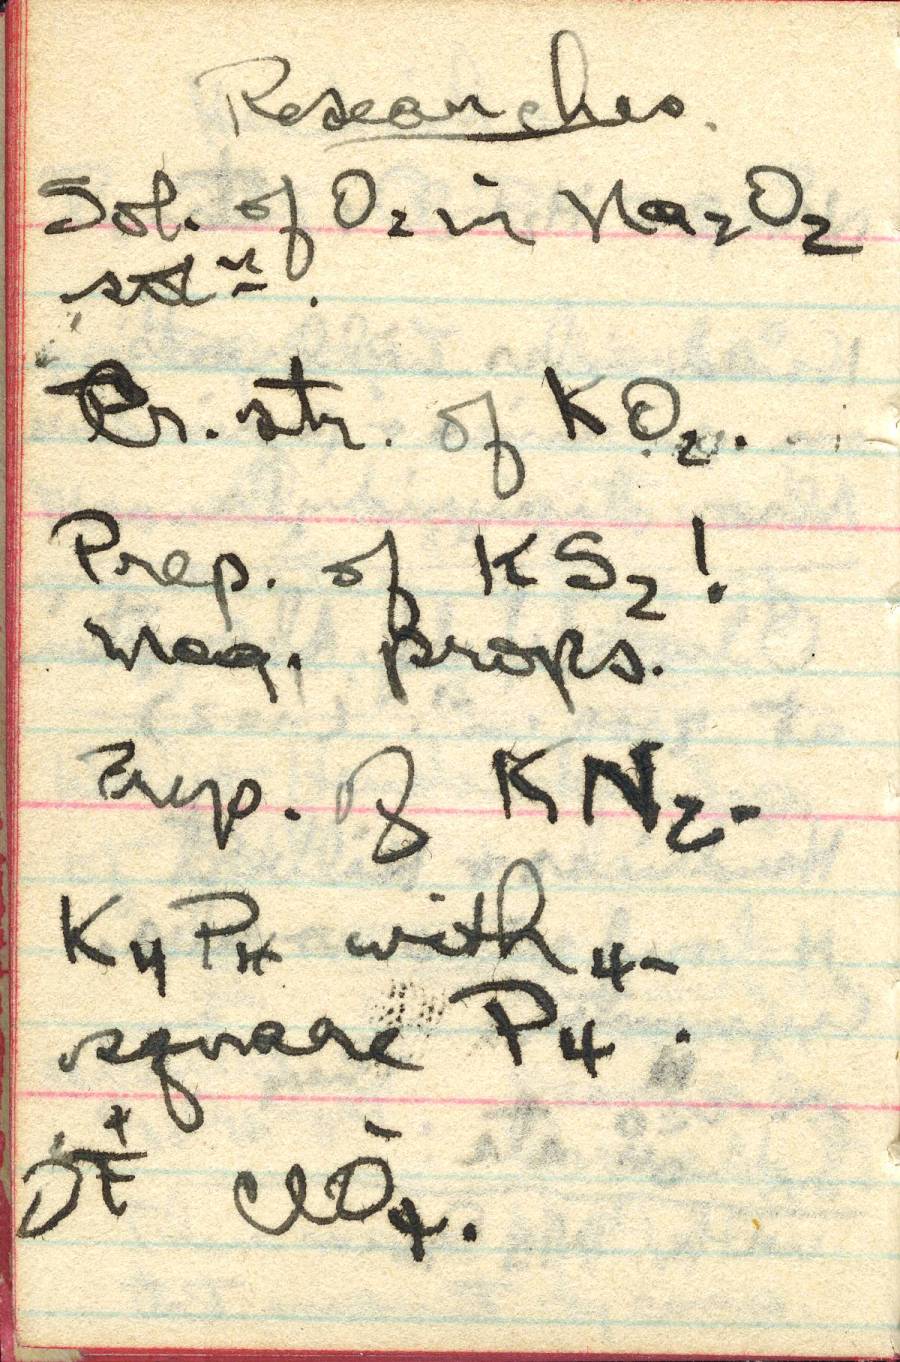 Researches.
Sol. of O₂ in Na₂O₂
solⁿ.
Cr. str. of KO₂.
Prep. of KS₂!
Mag. props.
Prep. of KN₂.
K₄P₄ with
square P₄⁴⁻.
ClO₄⁻.